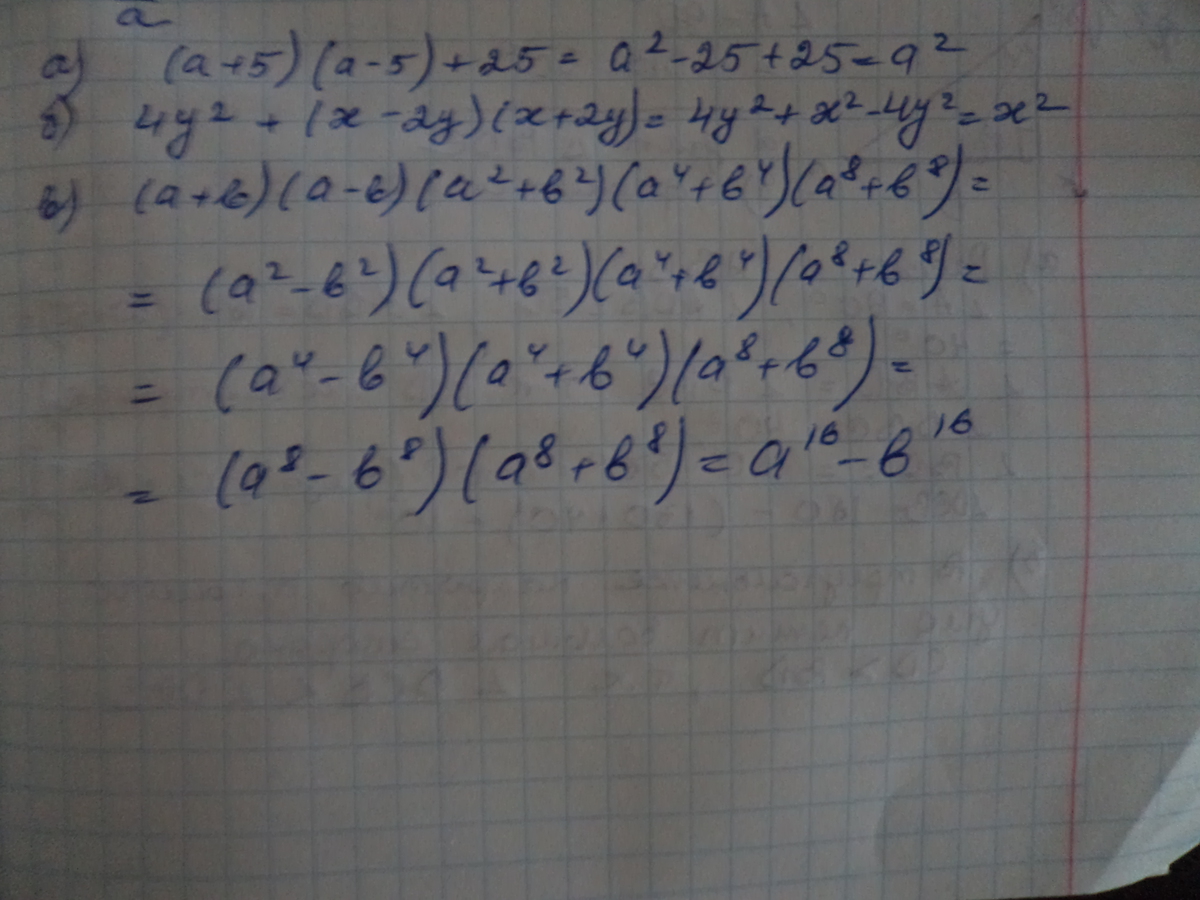 a
а) (a+5)(a-5)+25 = a²-25+25=a²
б) 4y² + (x-2y)(x+2y)= 4y²+x²-4y²=x²
в) (a+b)(a-b)(a²+b²)(a⁴+b⁴)(a⁸+b⁸)=
= (a²-b²)(a²+b²)(a⁴+b⁴)(a⁸+b⁸)=
= (a⁴-b⁴)(a⁴+b⁴)(a⁸+b⁸)=
= (a⁸-b⁸)(a⁸+b⁸)=a¹⁶-b¹⁶